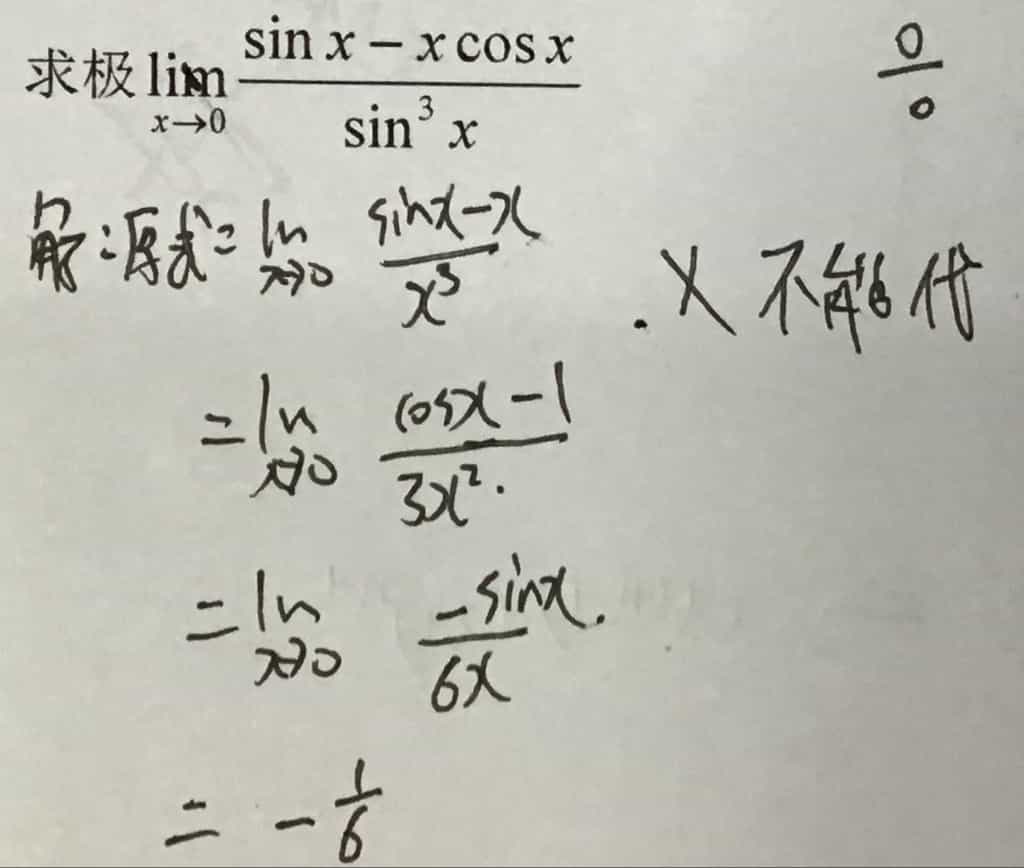 求极 lim x→0 (sin x − x cos x)/(sin³ x) 0/0
解:原式= lim x→0 (sinx−x)/x³ . X 不能代
= lim x→0 (cosx−1)/3x².
= lim x→0 −sinx/6x.
= −1/6